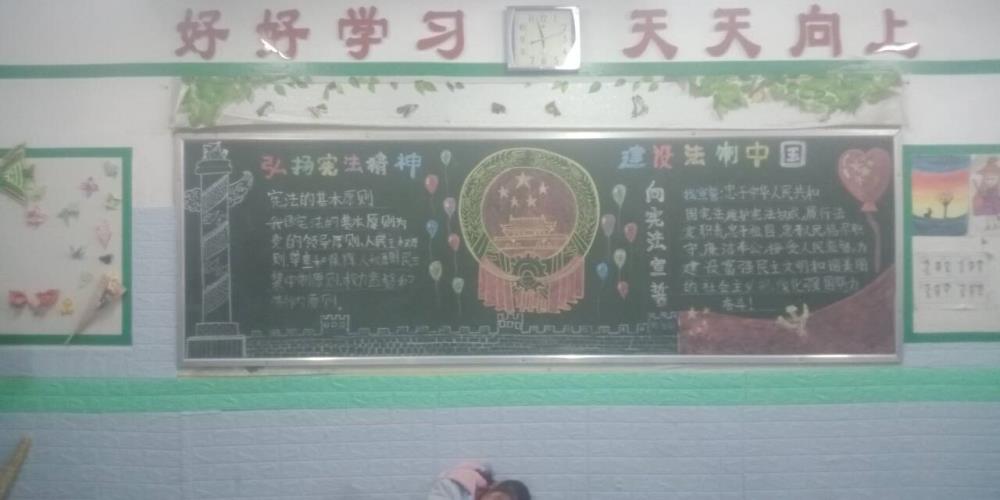 好好学习 天天向上
弘扬宪法精神
建设法制中国
宪法的基本原则
我国宪法的基本原则为
党的领导原则,人民主权原
则,尊重和保障人权
原则,权力监督和
原则。
向宪法宣誓
我宣誓:忠于中华人民共和
国宪法,维护宪法权威,履行法
定职责,忠于祖国,忠于人民,恪尽职
守,廉洁奉公,接受人民监督,为
建设富强民主文明和谐美丽
的社会主义现代化强国努力
奋斗!